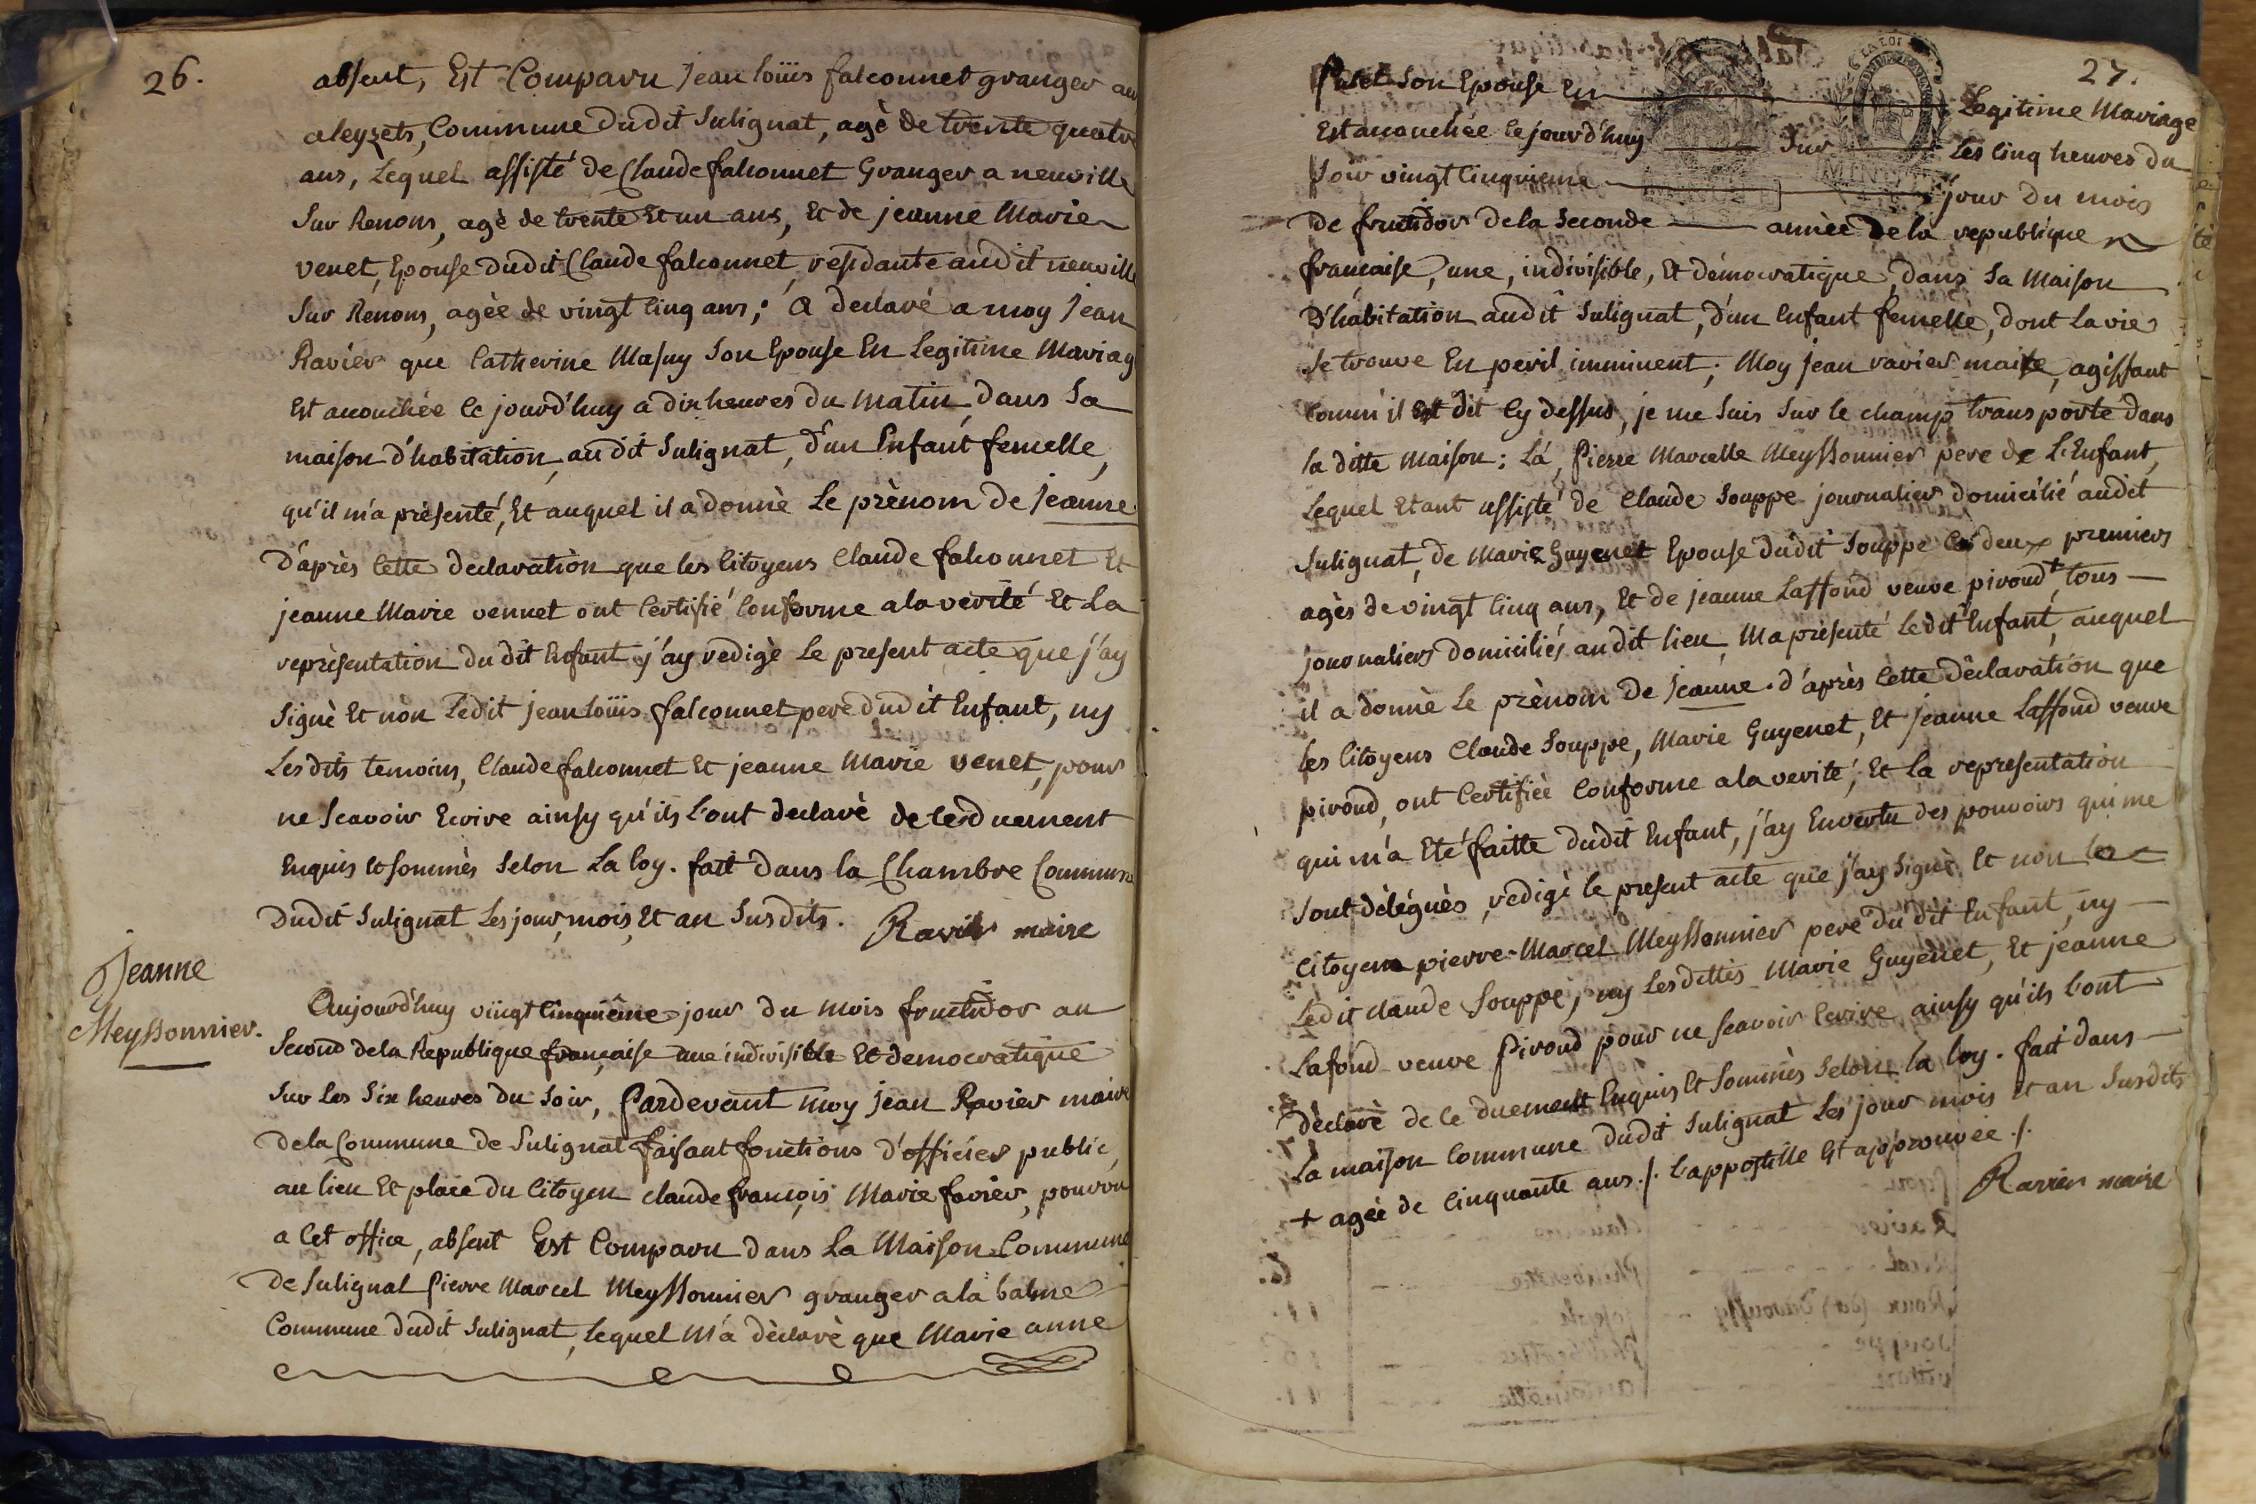 26.
absent, Est Comparu Jean loüis falconnet granger au
aleyzets, Commune dudit Sulignat, agè de trente quatre
ans, Lequel assisté de Claude falconnet Granger a neuville
Sur Renons, agè de trente et un ans, Et de jeanne Marie
venet, Epouse dudit Claude falconnet, residante audit neuville
Sur Renons, agèe de vingt cinq ans; a declaré a moy Jean
Ravier que Catherine Masuy Son Epouse En Legitime Mariag
Est accouchée ce jourd'huy a dix heures du matin, dans Sa
maison d'habitation, audit Sulignat, d'un Enfant femelle,
qu'il m'a présenté, Et auquel il a donnè Le prènom de Jeanne
D'après Cette declaration que les Citoyens Claude falconnet Et
jeanne Marie vennet ont Certifié Conforme a la verité Et La
reprèsentation du dit Enfant, j'ay redigè Le present acte que j'ay
Signè Et non Ledit jean loüis falconnet pere dudit Enfant, ny
Les dits temoins, Claude falconnet Et jeanne Marie venet, pour
ne Scavoir Ecrire ainsy qu'ils L'ont declarè de ce duement
Enquis Et sommès Selon La loy. fait dans la Chambre Commune
dudit Sulignat Les jour, mois, Et an Susdits. Ravier maire
Jeanne
Meyssonnier.
Aujourd'huy vingt Cinquième jour du mois fructidor an
Second de la Republique française une indivisible Et democratique
Sur Les Six heures du Soir, Pardevant moy jean Ravier maire
de la Commune de Sulignat faisant fonctions d'officier public,
au lieu Et place du Citoyen claude françois Marie favier, pourvu
a Cet office, absent Est Comparu dans La Maison Commune
de Sulignat Pierre Marcel Meyssonnier granger a la balme
Commune dudit Sulignat, Lequel M'a dèclarè que Marie anne
27.
Son Epouse En Legitime Mariage
Est accouchée Ce jourd'huy Sur Les Cinq heures du
Soir vingt Cinquieme jour du mois
De fructidor de la Seconde annèe de la republique
française, une, indivisible, Et démocratique, dans Sa Maison
D'habitation audit Sulignat, d'un Enfant femelle, dont La vie
Se trouve En peril imminent; Moy jean ravier maire, agissant
Comm'il Est dit Cy dessus, je me Suis Sur le champ transporté dans
la ditte Maison; Là, Pierre Marcelle Meyssonnier pere de L'Enfant,
Lequel Etant assisté de Claude Souppe journalier domicilié audit
Sulignat, de Marie Guyenet Epouse dudit Souppe les deux premiers
agès de vingt Cinq ans, Et de jeanne Laffond veuve pivoud + tous
journaliers domiciliés audit lieu, M'a présenté Ledit Enfant, auquel
il a donnè Le prènom de Jeanne. d'après Cette dèclaration que
Les Citoyens Claude Souppe, Marie Guyenet, Et jeanne Laffond veuve
pivoud, ont Certifiée Conforme a la verité, Et La representation
qui m'a Eté faitte dudit Enfant, j'ay En vertu des pouvoirs qui me
Sont délégués, redigé le present acte que j'ay Signè. Et non le
Citoyen pierre Marcel Meyssonnier pere du dit Enfant, ny
Ledit claude Souppe, ny Lesdittes Marie Guyenet, Et jeanne
Lafond veuve Pivoud pour ne Scavoir Ecrire ainsy qu'ils L'ont
Dèclarè de ce duement Enquis Et Sommès Selon la loy. fait dans
La maison Commune dudit Sulignat Les jour mois Et an Susdits
+ agée de Cinquante ans ./. L'appostille Est approuvée ./.
Ravier maire